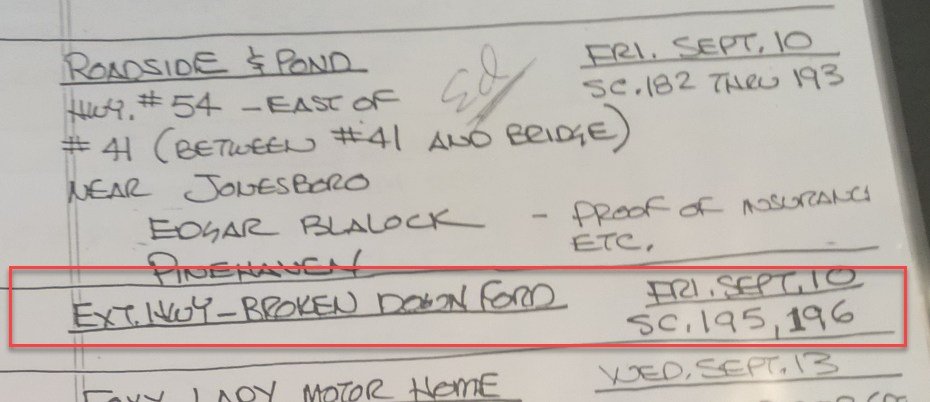 ROADSIDE & POND
FRI. SEPT. 10
Ed
SC. 182 THRU 193
HWY. # 54 - EAST OF
# 41 (BETWEEN #41 AND BRIDGE)
NEAR JONESBORO
EDGAR BLALOCK - PROOF OF INSURANCE
ETC.
PINEHAVEN
EXT. HWY - BROKEN DOWN FORD
FRI. SEPT. 10
SC. 195, 196
WED. SEPT. 13
LADY MOTOR HOME